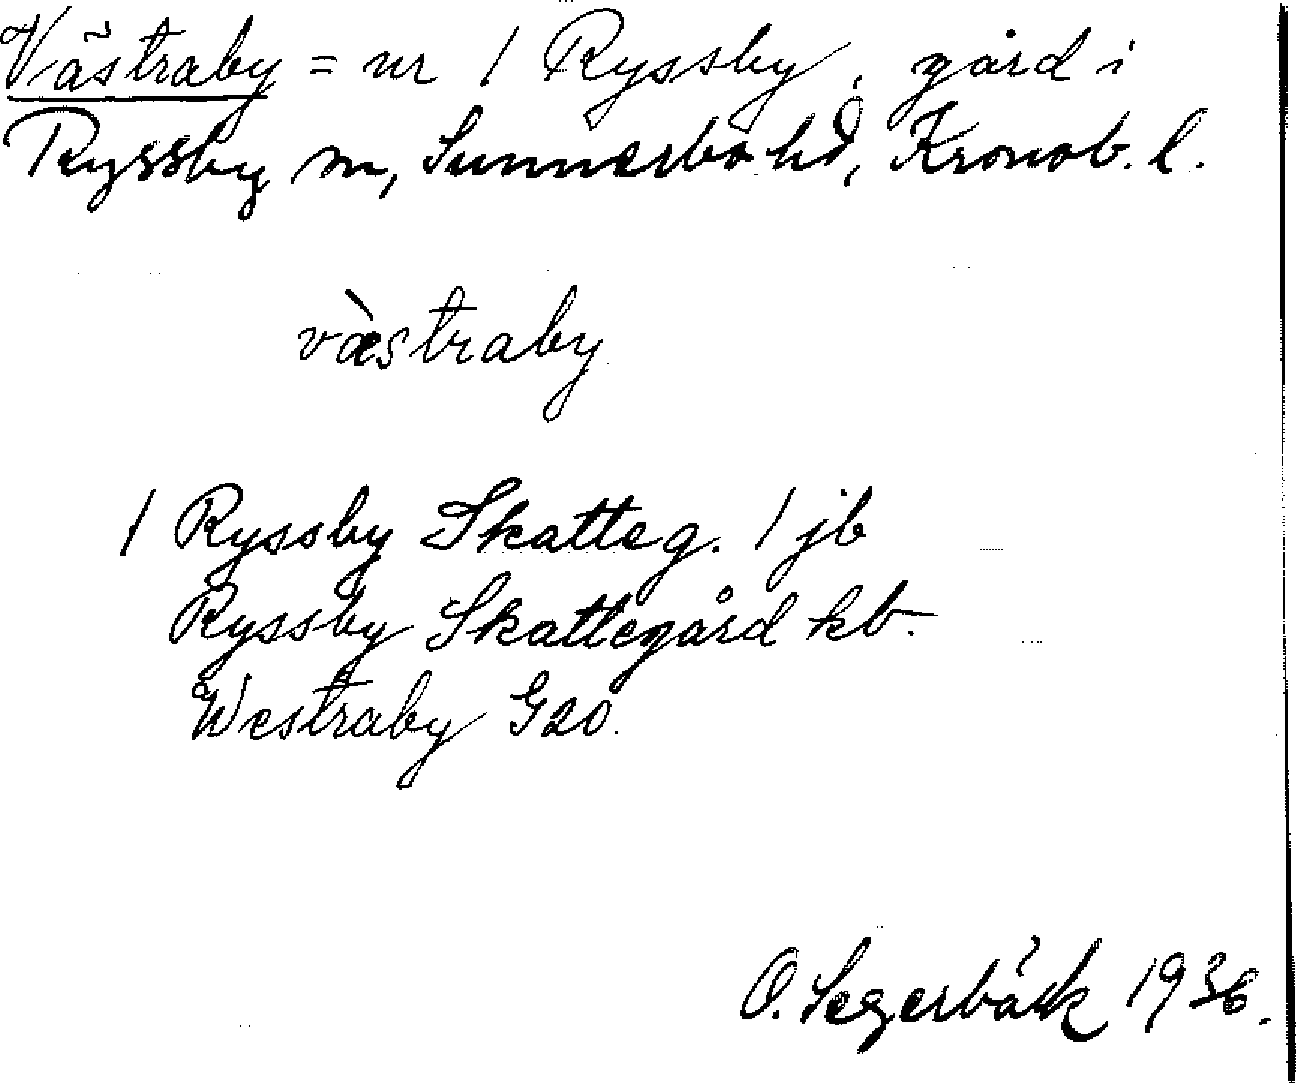 Västraby = nr 1 Ryssby, gård i
Ryssby sn, Sunnerbo hd, Kronob. l.
væ̀straby
1 Ryssby Skatteg. 1 jb
Ryssby Skattegård kb.
Westraby G20.
O. Segerbäck 1936.